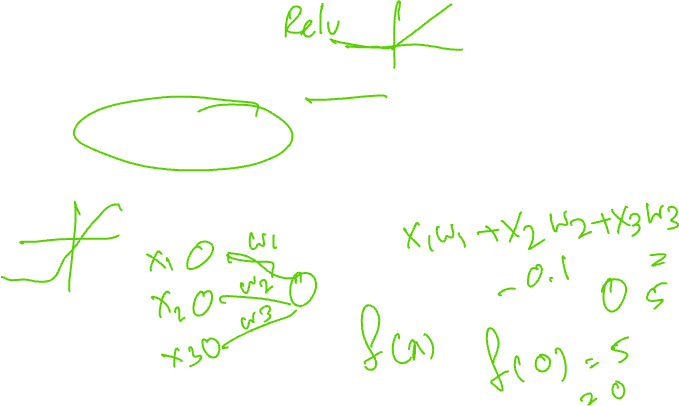 Relu
x1 w1
x2 w2
x3 w3
x1w1 + x2 w2 + x3 w3
-0.1 2
0 5
f(x) f(0) = 5
= 0